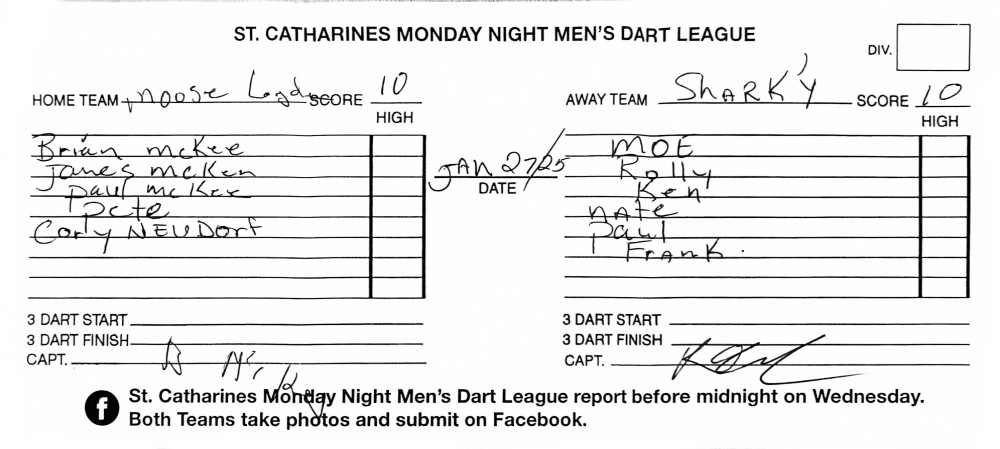 ST. CATHARINES MONDAY NIGHT MEN'S DART LEAGUE
DIV.
HOME TEAM moose Lodge SCORE 10
AWAY TEAM SHARK'y SCORE 10
HIGH
HIGH
Brian mcKee
James mcKen
Paul mcKee
Pete
Cory NEUDorf
JAN 27/25
DATE
MOE
Rolly
Ken
NATE
Paul
FRANK.
3 DART START
3 DART FINISH
CAPT.
3 DART START
3 DART FINISH
CAPT.
f St. Catharines Monday Night Men's Dart League report before midnight on Wednesday.
Both Teams take photos and submit on Facebook.